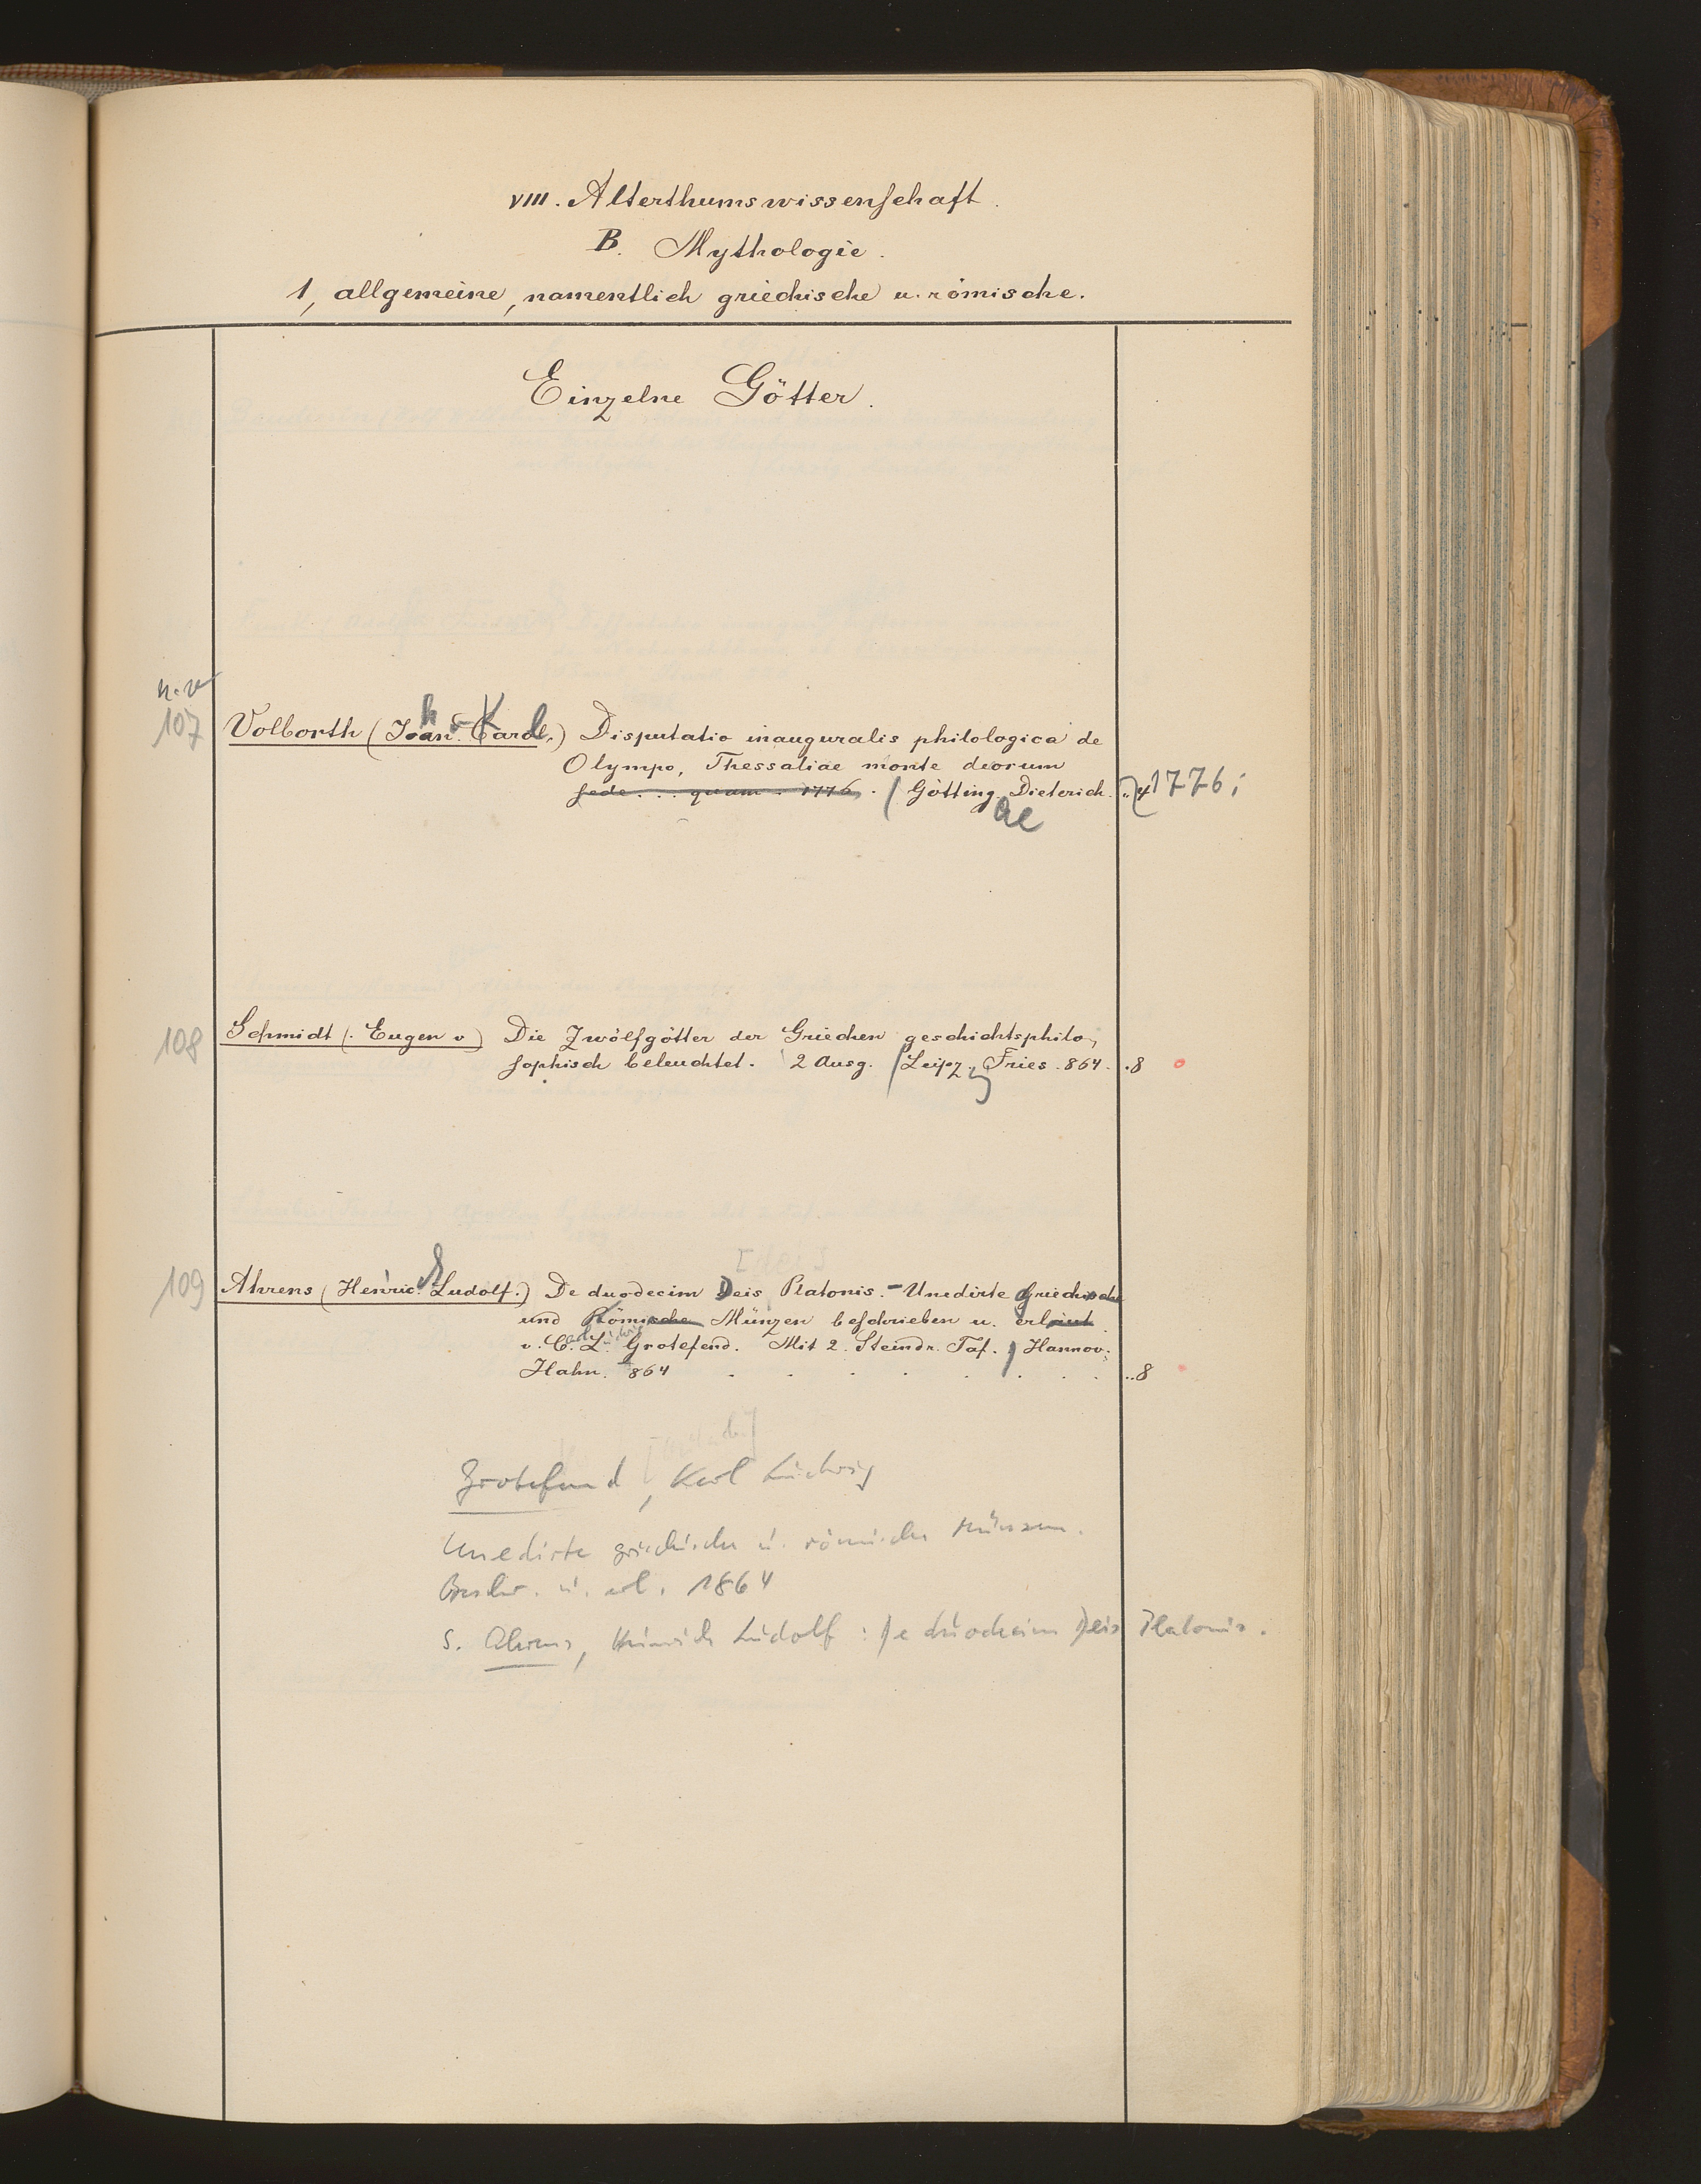 VIII. Alterthumswissenschaft.
B. Mythologie.
1, allgemeine, namentlich griechische u. römische.
Einzelne Götter.
107 Volborth (Joan. Carol.) Disputatio inauguralis philologica de
Olympo, Thessaliae monte deorum
sede... quam. 1776. / Götting. Dieterich. 4 1776;
ae
108 Schmidt (. Eugen v) Die Zwölfgötter der Griechen geschichtsphilo-
sophisch beleuchtet. 2 Ausg. / Leipz. Fries. 864. .8
109 Ahrens (Henric. Ludolf.) De duodecim Deis Platonis. - Unedirte griechische
und Römische Münzen beschrieben u. erläut.
v. C. L. Grotefend. Mit 2. Steindr. Taf. / Hannov.
Hahn. 864 . . . . . . . . ..8
Grotefend, Karl Ludwig
Unedirte griechische u. römische Münzen.
Beschr. u. erl. 1864
S. Ahrens, Heinrich Ludolf: De duodecim Deis Platonis.